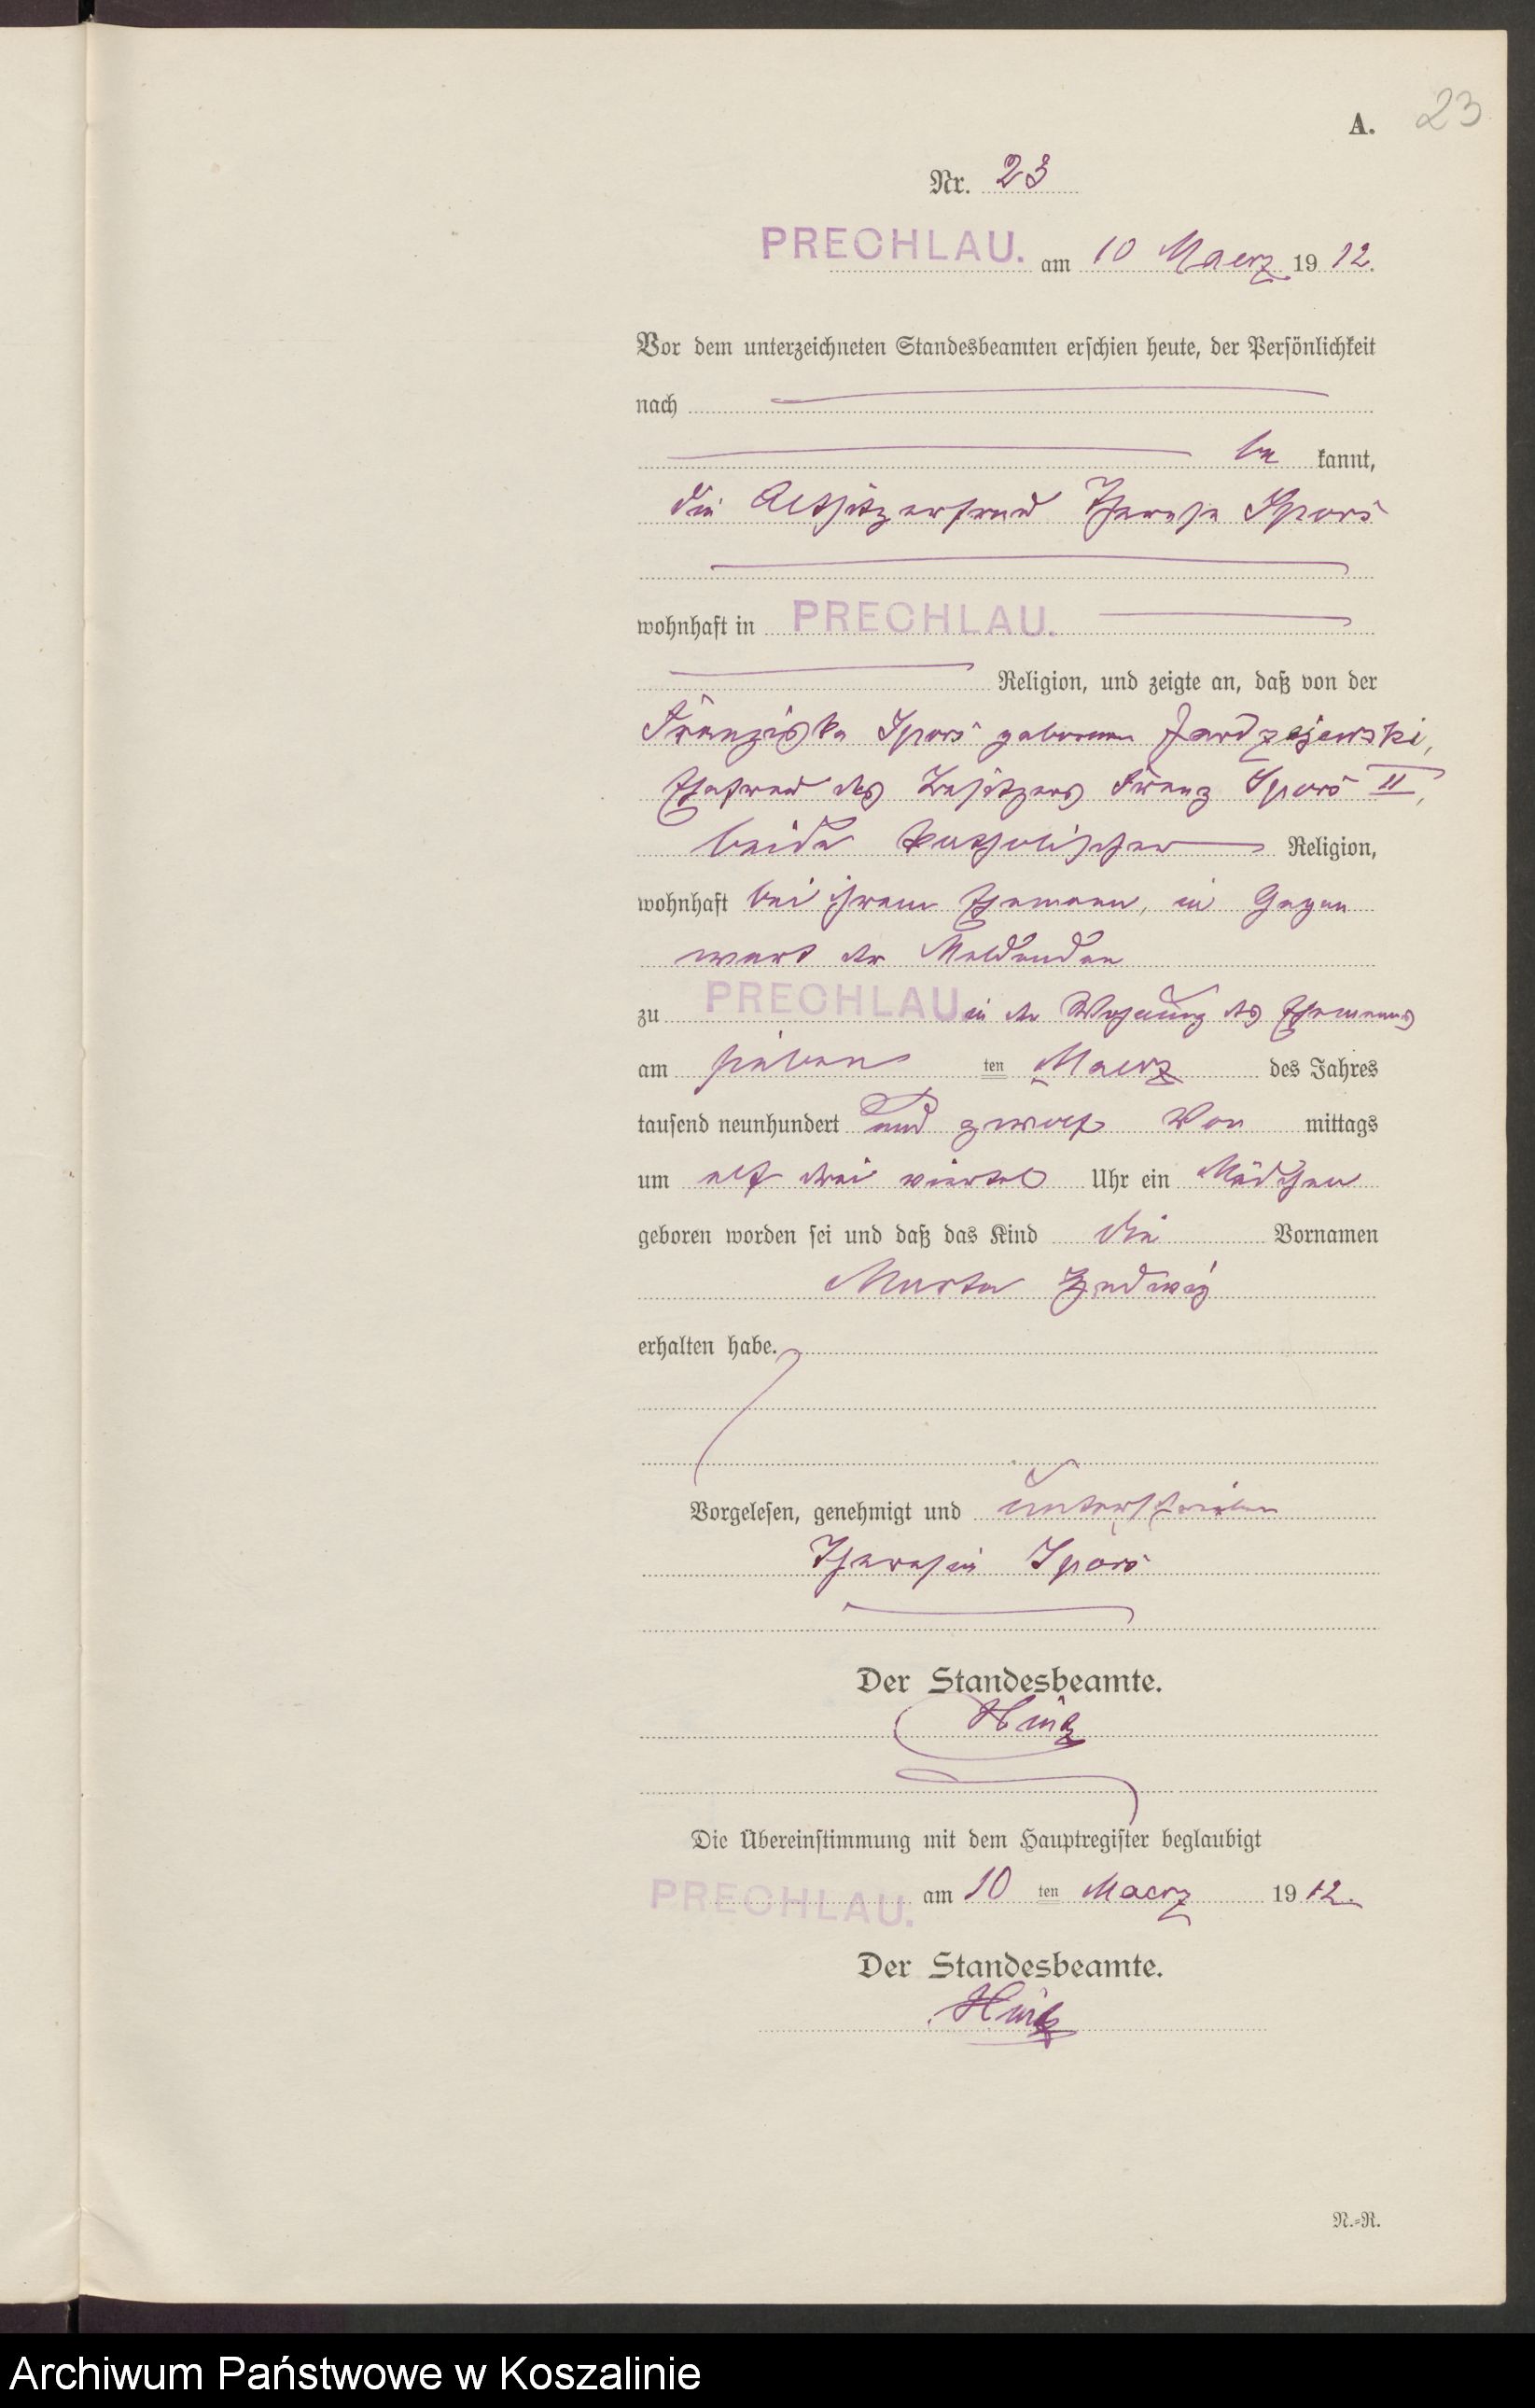 A. 23
Nr. 23
PRECHLAU. am 10 Maerz 1912.
Vor dem unterzeichneten Standesbeamten erschien heute, der Persönlichkeit
nach
be kannt,
die Altsitzerfrau Therese Spors
wohnhaft in PRECHLAU.
Religion, und zeigte an, daß von der
Franziska Spors geborenen Jardzejewski,
Ehefrau des Besitzers Franz Spors II,
beide katholischer Religion,
wohnhaft bei ihrem Ehemann, in Gegen
wart der Meldenden
zu PRECHLAU in der Wohnung des Ehemanns
am sieben ten Maerz des Jahres
tausend neunhundert und zwölf Vor mittags
um elf drei viertel Uhr ein Mädchen
geboren worden sei und daß das Kind die Vornamen
Marta Hedwig
erhalten habe.
Vorgelesen, genehmigt und unterschrieben
Theresia Spors
Der Standesbeamte.
Hintz
Die Übereinstimmung mit dem Hauptregister beglaubigt
PRECHLAU. am 10 ten Maerz 1912.
Der Standesbeamte.
Hintz
N.-R.
Archiwum Państwowe w Koszalinie